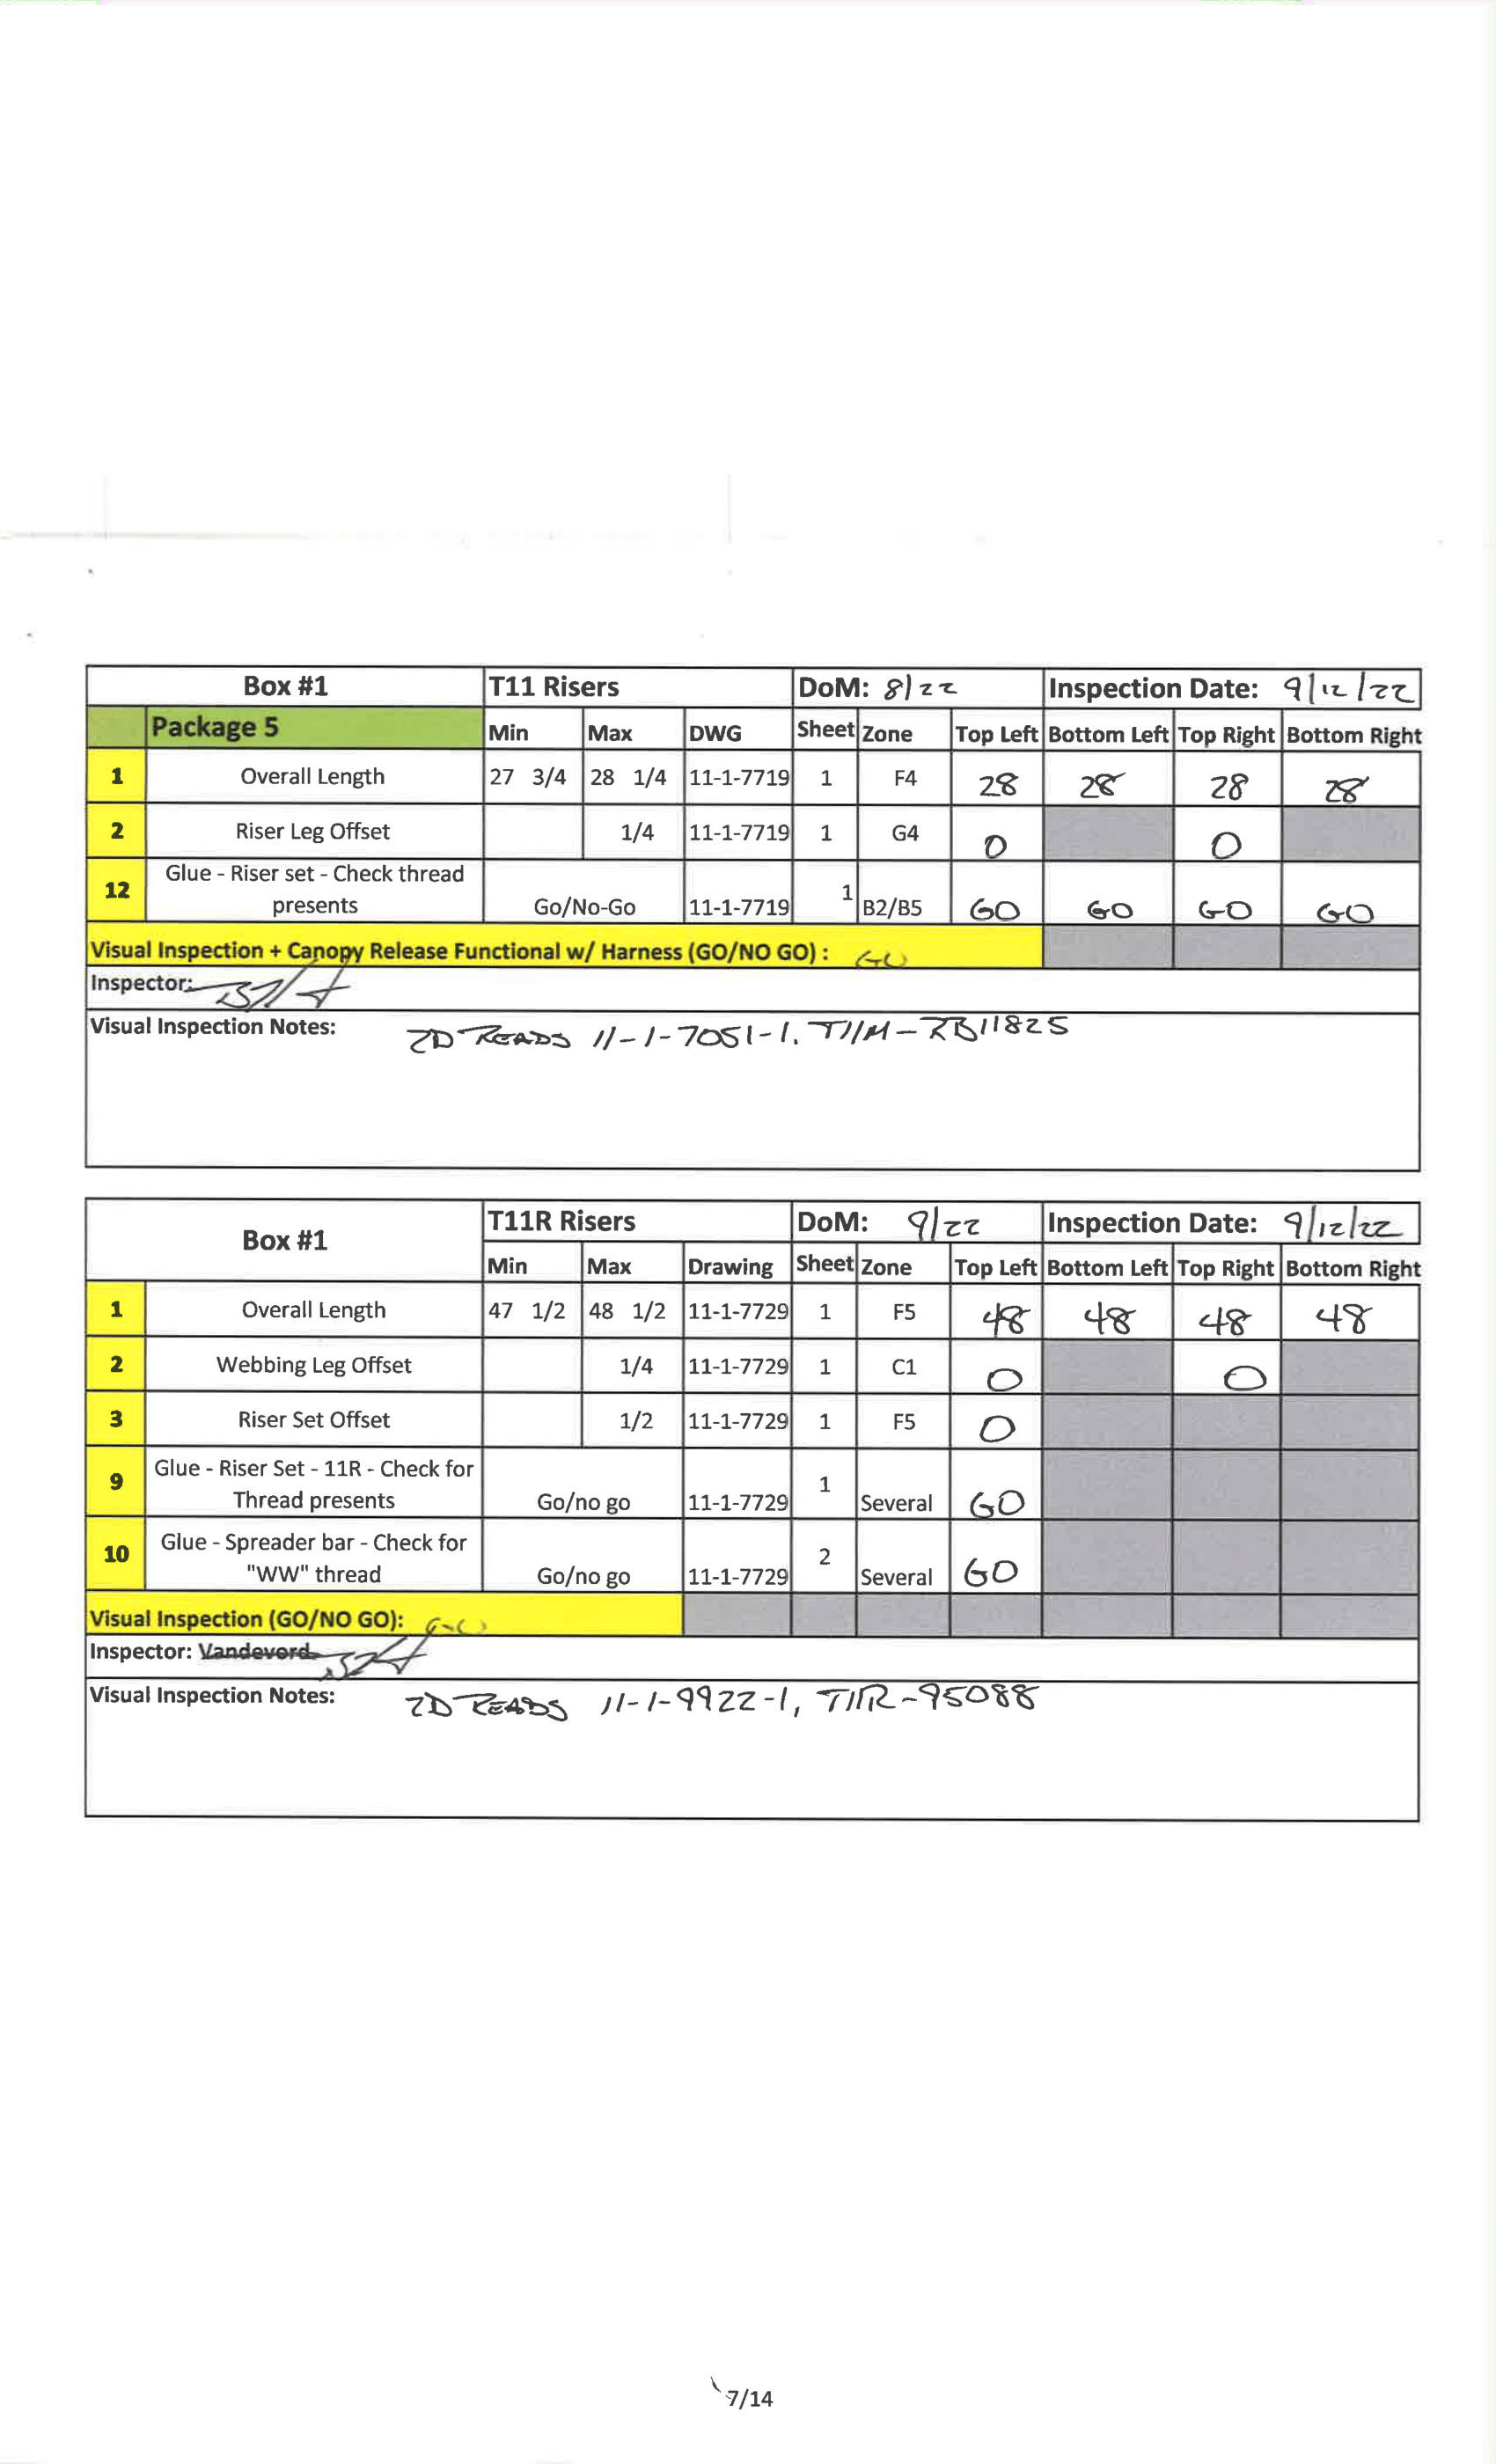 Box #1 T11 Risers DoM: 8/22 Inspection Date: 9/12/22
Package 5 Min Max DWG Sheet Zone Top Left Bottom Left Top Right Bottom Right
1 Overall Length 27 3/4 28 1/4 11-1-7719 1 F4 28 28 28 28
2 Riser Leg Offset 1/4 11-1-7719 1 G4 0 0
12 Glue - Riser set - Check thread
presents Go/No-Go 11-1-7719 1 B2/B5 GO GO GO GO
Visual Inspection + Canopy Release Functional w/ Harness (GO/NO GO) : GO
Inspector:
Visual Inspection Notes: 2D READS 11-1-7051-1. T11M-RB11825
Box #1 T11R Risers DoM: 9/22 Inspection Date: 9/12/22
Min Max Drawing Sheet Zone Top Left Bottom Left Top Right Bottom Right
1 Overall Length 47 1/2 48 1/2 11-1-7729 1 F5 48 48 48 48
2 Webbing Leg Offset 1/4 11-1-7729 1 C1 0 0
3 Riser Set Offset 1/2 11-1-7729 1 F5 0
9 Glue - Riser Set - 11R - Check for
Thread presents Go/no go 11-1-7729 1 Several GO
10 Glue - Spreader bar - Check for
"WW" thread Go/no go 11-1-7729 2 Several GO
Visual Inspection (GO/NO GO): GO
Inspector: Vandevord
Visual Inspection Notes: 2D READS 11-1-9922-1, T11R-95088
7/14